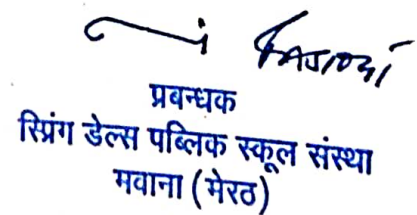 प्रबन्धक
स्प्रिंग डेल्स पब्लिक स्कूल संस्था
मवाना (मेरठ)